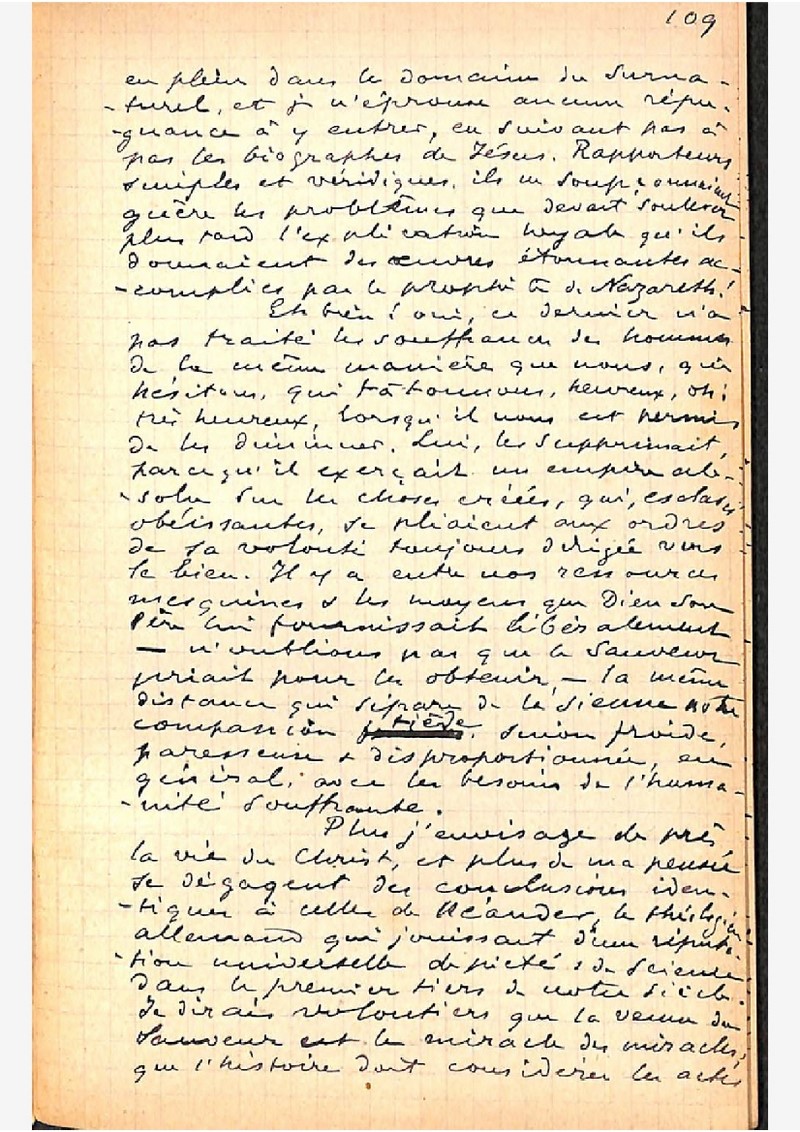 109
en plein dans le domaine du surna-
-turel, et je n'éprouve aucune répu-
-gnance à y entrer, en suivant pas à
pas les biographes de Jésus. Rapporteurs
simples et véridiques, ils ne soupçonnaient
guère les problèmes que devait soulever
plus tard l'explication loyale qu'ils
donnaient des œuvres étonnantes ac-
-complies par le prophète de Nazareth!
Eh bien! oui, ce dernier n'a
pas traité les souffrances des hommes
de la même manière que nous, qui
hésitons, qui tâtonnons, heureux, oh!
très heureux, lorsqu'il nous est permis
de les diminuer. Lui, les supprimait,
parce qu'il exerçait un empire ab-
-solu sur les choses créées, qui, esclaves
obéissantes, se pliaient aux ordres
de sa volonté toujours dirigée vers
le bien. Il y a entre nos ressources
mesquines & les moyens que Dieu son
Père lui fournissait libéralement
— n'oublions pas que le Sauveur
priait pour les obtenir, — la même
distance qui sépare de la sienne notre
compassion tiède, sinon froide,
paresseuse & disproportionnée, en
général, avec les besoins de l'huma-
-nité souffrante.
Plus j'envisage de près
la vie du Christ, et plus de ma pensée
se dégagent des conclusions iden-
-tiques à celles de Néander, le théologien
allemand qui jouissait d'une réputa-
-tion universelle de piété & de science
dans le premier tiers de notre siècle.
Je dirais volontiers que la venue du
Sauveur est le miracle des miracles,
que l'histoire doit considérer les actes